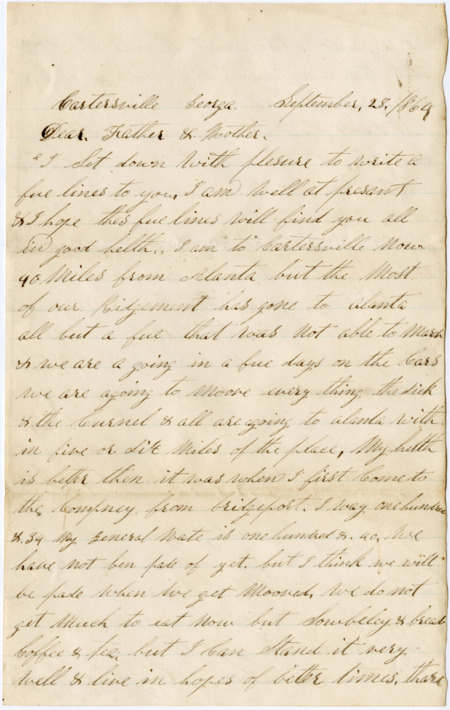 Cartersville Georga September, 28. 1864
Dear Father & Mother.
I Set down With plesure to write a
fue lines to you, I am well at presant
& I hope this fue lines will find you all
in good helth.. I am to Cartersville Now
40 Miles from Alanta but the Most
of our Ridgement has gone to alanta
all but a fue that was Not able to March
& we are a going in a fue days on the Cars
we are agoing to Moove every thing the Sick
& the Curnel & all are going to alanta with
in five or Six Miles of the place, My helth
is better then it was when I first Come to
the Compney from bridgeport. I way one hundred
& 34 My general wate is one hundred & 20. We
have not ben pade of yet. but I think we will
be pade when We get Mooved, We do not
get Much to eat Now but Sowbelley & bread
Coffee & tea. but I Can Stand it very
well & live in hopes of better times. thare